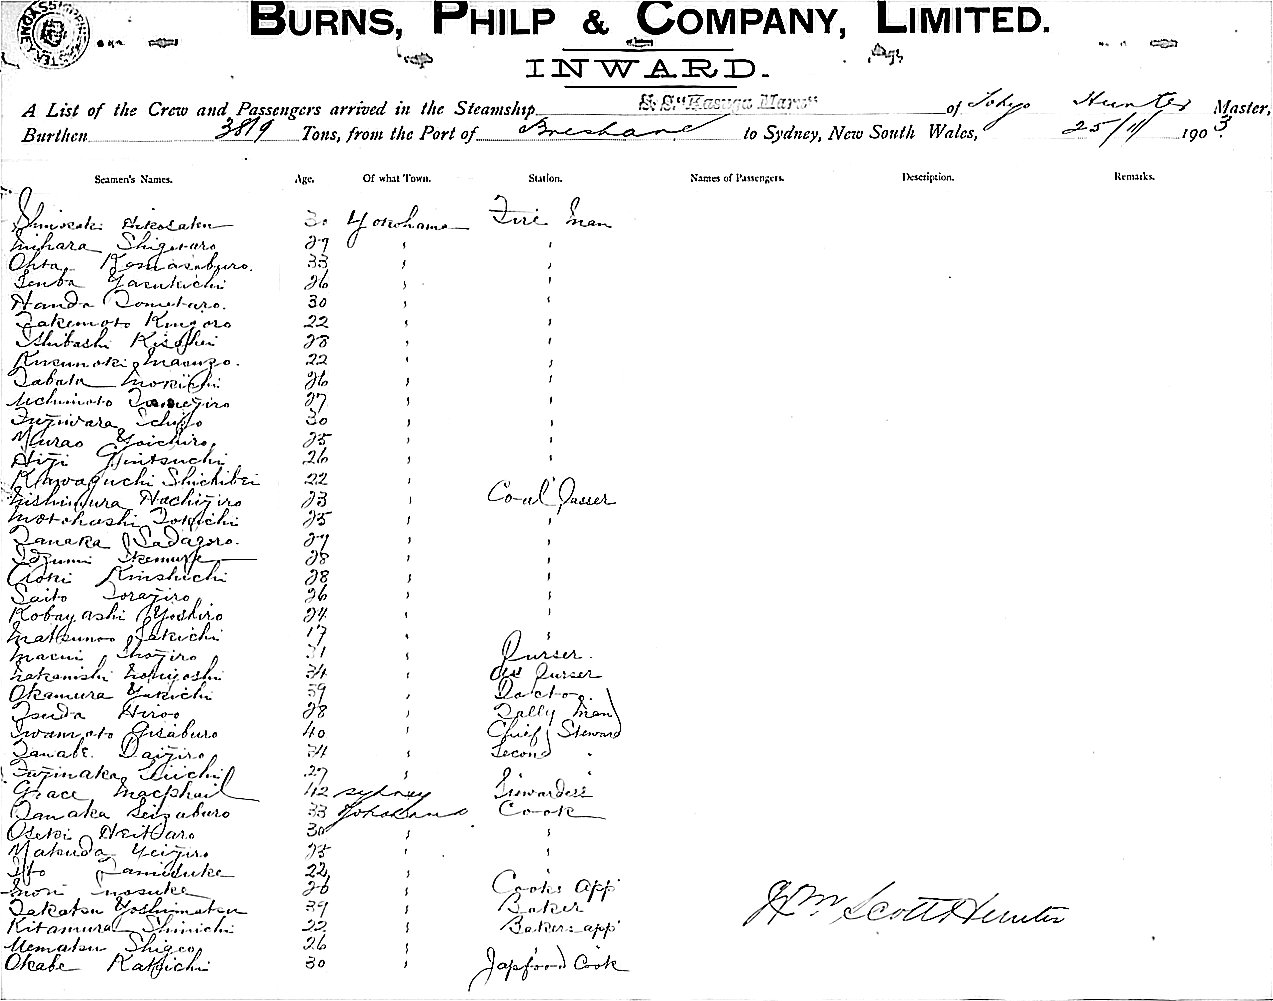 BURNS, PHILP & COMPANY, LIMITED.
INWARD.
A List of the Crew and Passengers arrived in the Steamship S. S. "Kasuga Maru" of Tokyo Hunter Master,
Burthen 3819 Tons, from the Port of Brisbane to Sydney, New South Wales, 25/11/ 1903.
Seamen's Names. Age. Of what Town. Station. Names of Passengers. Description. Remarks.
30 Yokohama Fire Man
Mihara Shigetaro 27 " "
Ohta Komasaburo. 33 " "
Senba Yasukichi 26 " "
Handa Tometaro. 30 " "
Takemoto Kingoro 22 " "
Ishibashi Kisohei 28 " "
Kusunoki Masuzo. 22 " "
Tabata Mokichi 26 " "
Uchimoto 27 " "
Fujiwara 30 " "
Murao Yoichiro 25 " "
26 " "
Kawaguchi Shichibei 22 " "
Nishimura Hachijiro 23 " Coal Passer
Motohashi Tokichi 25 " "
Tanaka Sadagoro. 27 " "
28 " "
Aoki Kinshichi 28 " "
Saito Torajiro 26 " "
Kobayashi Yoshiro 24 " "
17 " "
Shojiro 31 " Purser.
Nakanishi 34 " Purser
Okamura Yukichi 39 " Doctor.
Tsuda Hiroo 28 " Tally Man
Iwamoto Gisaburo 40 " Chief Steward
Tanabe Daijiro 34 " Second "
Fujinaka 27 "
Grace Macphail 42 Sydney Stewardess
Tanaka Seizaburo 33 Yokohama Cook
Oseki 30 " "
Yeijiro 25 " "
Ito 22 "
Mori Inosuke 26 " Cooks app
Takatsu Yoshimatsu 39 " Baker
Kitamura Shinichi 22 " Bakers app
Uematsu Shigeo 26 " "
Okabe Kakichi 30 " Japfood Cook
Wm Scott Hunter